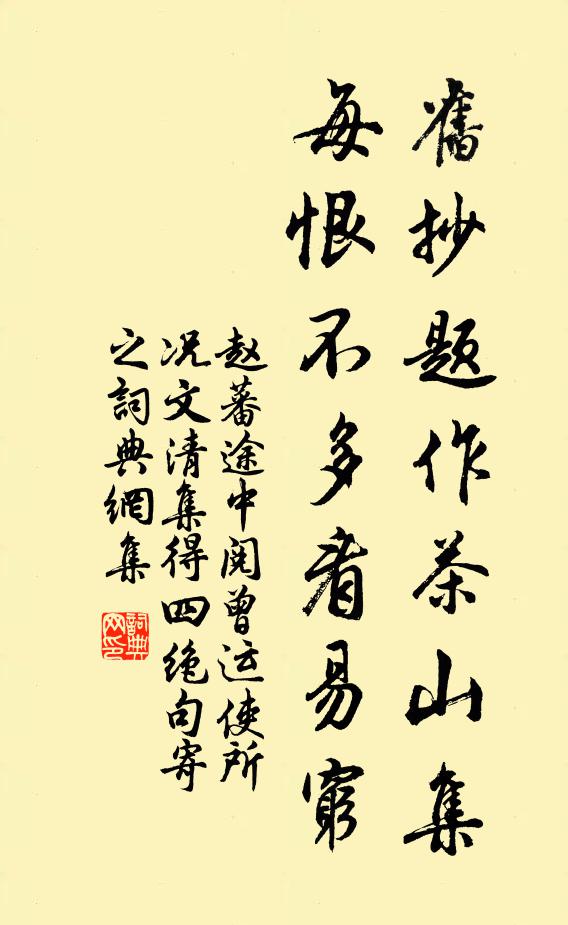 舊抄题作茶山集
每恨不多看易窮
赵蕃途中阅曾运使所
况文清集得四绝句寄
之詞典網集
詞典
网印